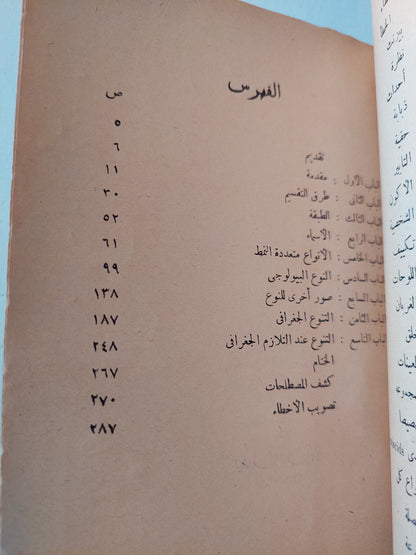 الفهرس
ص
تقديم ٥
الباب الأول : مقدمة ٦
الباب الثانى : طرق التقسيم ١١
الباب الثالث : الطبقة ٣٠
الباب الرابع : الأسماء ٥٢
الباب الخامس : الأنواع متعددة النمط ٦١
الباب السادس : النوع البيولوجى ٩٩
الباب السابع : صور أخرى للنوع ١٣٨
الباب الثامن : التنوع الجغرافى ١٨٧
الباب التاسع : التنوع عند التلازم الجغرافى ٢٤٨
الختام ٢٦٧
كشف المصطلحات ٢٧٠
تصويب الأخطاء ٢٨٧
نظرة
أحداث
ذبابة
الشخصية
تكييف
اللوحات
لغربان